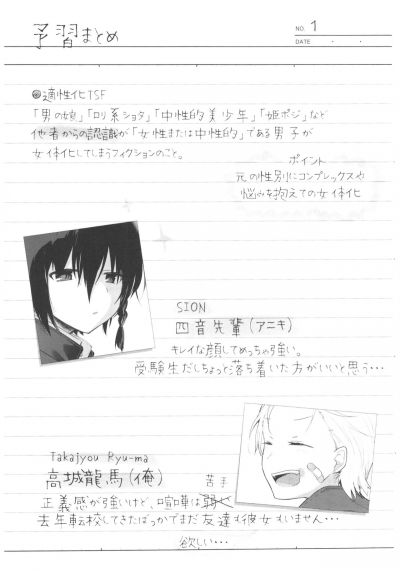 予習まとめ
NO. 1
DATE . .
◎適性化TSF
「男の娘」「ロリ系ショタ」「中性的美少年」「姫ポジ」など
他者からの認識が「女性または中性的」である男子が
女体化してしまうフィクションのこと。
ポイント
元の性別にコンプレックスや
悩みを抱えての女体化
SION
四音先輩(アニキ)
キレイな顔してめっちゃ強い。
受験生だしちょっと落ち着いた方がいいと思う…
Takajyou Ryu-ma
高城龍馬(俺)
苦手
正義感が強いけど、喧嘩は弱く
去年転校してきたばっかでまだ友達も彼女もいません…
欲しい…